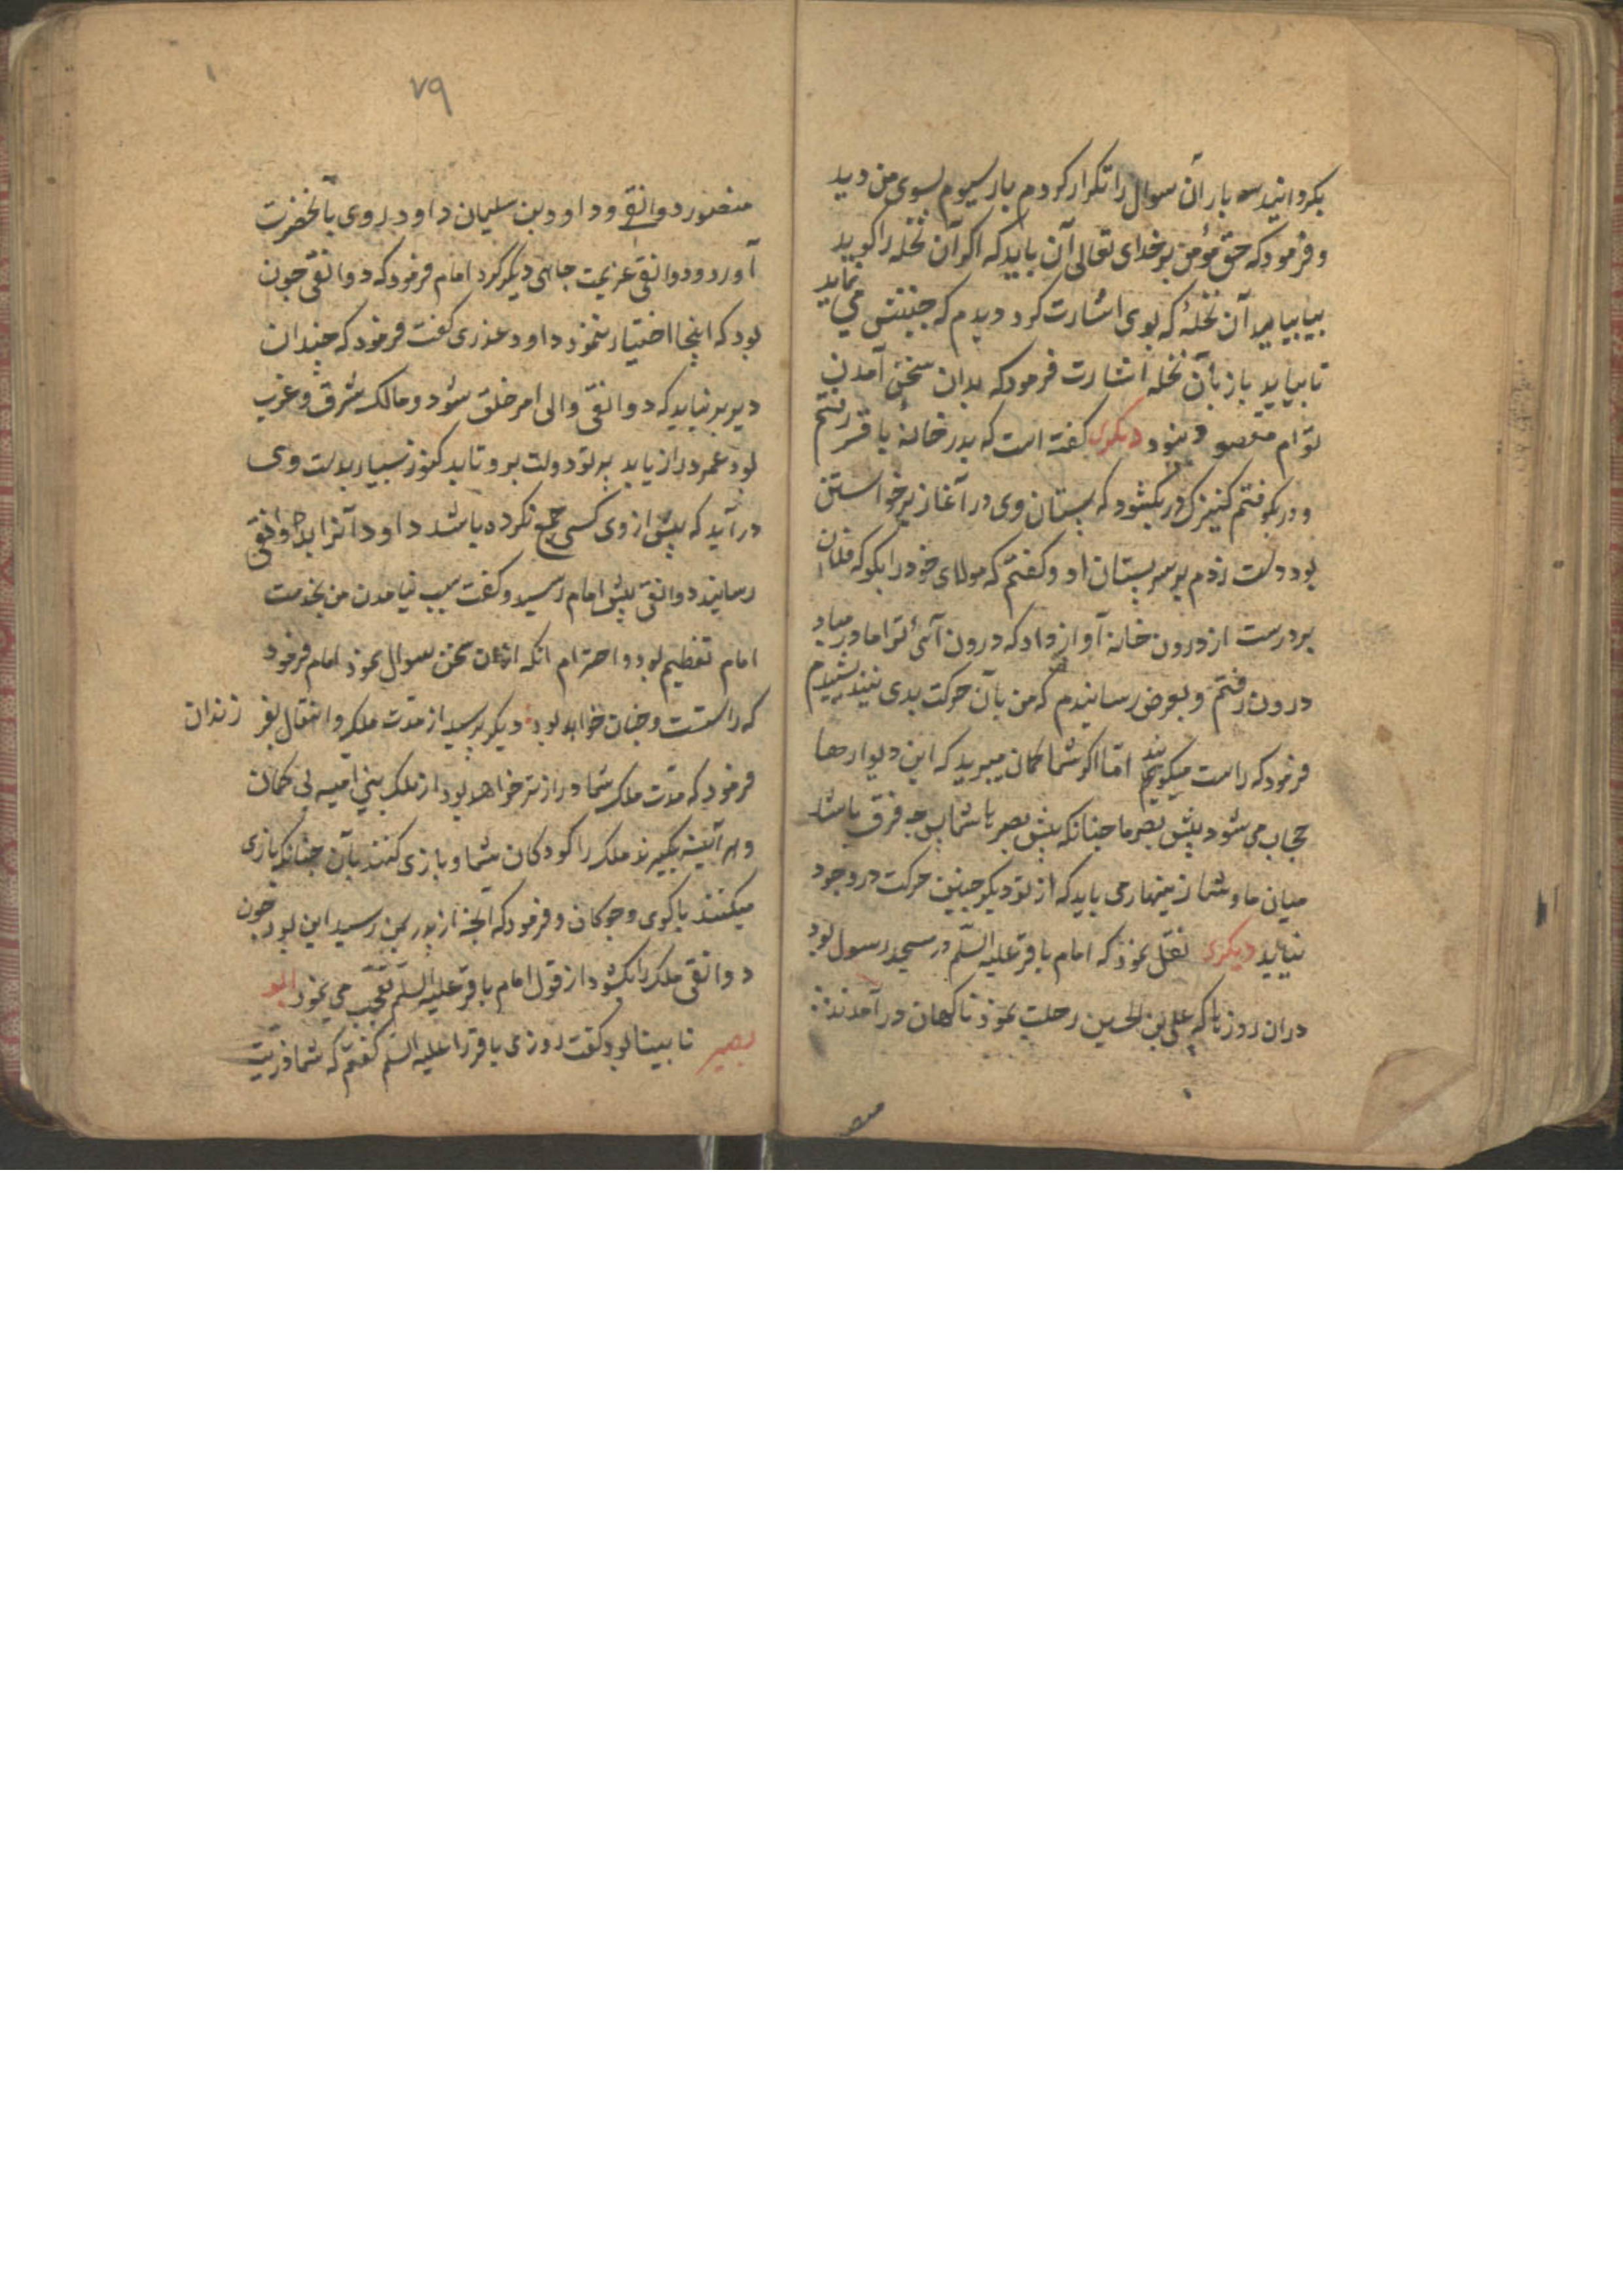 بکردانید سه بار آن سوال را تکرار کردم بار سیوم بسوی من دید
و فرمود که حق مؤمن بر خدای تعالی آن باید که اگر آن نخله را گوید
بیا بیاید آن نخلهٔ که بوی اشارت کرد دیدم که جنبش می نماید
تا بیاید باز بآن نخله اشارت فرمود که بدان سخن آمدن
توام مقصود نبود دیگری گفته است که بدر خانهٔ باقر رفتم
و در بکوفتم کنیزک در بکشود که پستان وی در آغاز برخواستن
بود دست زدم بر سر پستان او و گفتم که مولای خود را بگو که فلان
بر درست از درون خانه آواز داد که درون آی ترا مادر مباد
درون رفتم و بعرض رسانیدم که من بآن حرکت بدی نیندیشیدم
فرمود که راست میگویید اما اگر شما گمان میبرید که این دیوارها
حجاب می شود پیش بصر ما چنانکه پیش بصر با شما پس چه فرق باشد
میان ما و شما زینهار می باید که از تو دیگر چنین حرکت در وجود
نیاید دیگری نقل نمود که امام باقر علیه السلم در مسجد رسول بود
دران روزها که علی بن الحسین رحلت نمود ناگهان درآمدند
منصور
٧٩
منصور دوانقی و داود بن سلیمان داود روی بآنحضرت
آورد و دوانقی عزیمت جاهی دیگر کرد امام فرمود که دوانقی چون
بود که اینجا اختیار ننمود داود عذری گفت فرمود که چندان
دیر بر نیاید که دوانقی والی امر خلق شود و مالک شرق و غرب
بود عمر دراز یابد پرتو دولت برو تابد کنوز بسیار بدست وی
درآید که پیش از وی کسی جمع نکرده باشد داود آنرا بدوانقی
رسانید دوانقی پیش امام رسید و گفت سبب نیامدن من بخدمت
امام تعظیم بود و احترام آنکه ازان سخن سوال نمود امام فرمود
که راستست و چنان خواهد بود دیگر پرسید از مدت ملک و انتقال بفرزندان
فرمود که مدت ملک شما درازتر خواهد بود از ملک بنی امیه بی گمان
و هر آئینه بگیرند ملک را کودکان شما و بازی کنند بآن چنانکه بازی
میکنند با گوی و چوگان و فرمود که آنچه از پدر بمن رسید این بود چون
دوانقی ملک را بکشود از قول امام باقر علیه السلم تعجب می نمود ابو
بصیر نا بینا بود گفت روزی باقر را علیه السلم گفتم که شما ذریت